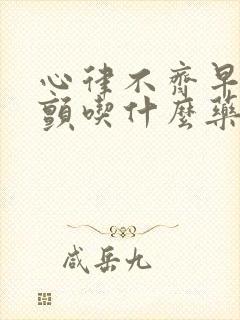 心律不齊早
顫喫什麼藥
咸岳九